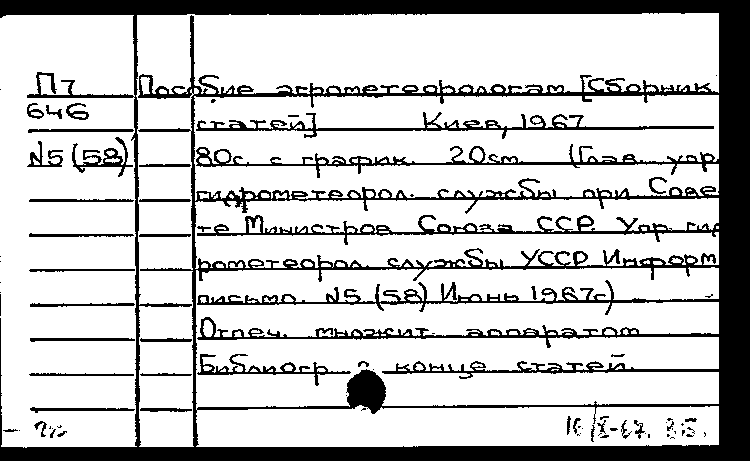 П7 Пособие агрометеорологам [Сборник
646 статей] Киев, 1967
N5 (58) 80с. с график. 20см (Глав. упр.
гидрометеорол. службы при Сове-
те Министров Союза ССР. Упр. гид
рометеорол. службы УССР Информ.
письмо. N5 (58) Июнь 1967г)
Отпеч. множит. аппаратом
Библиогр в конце статей.
16/X-67.